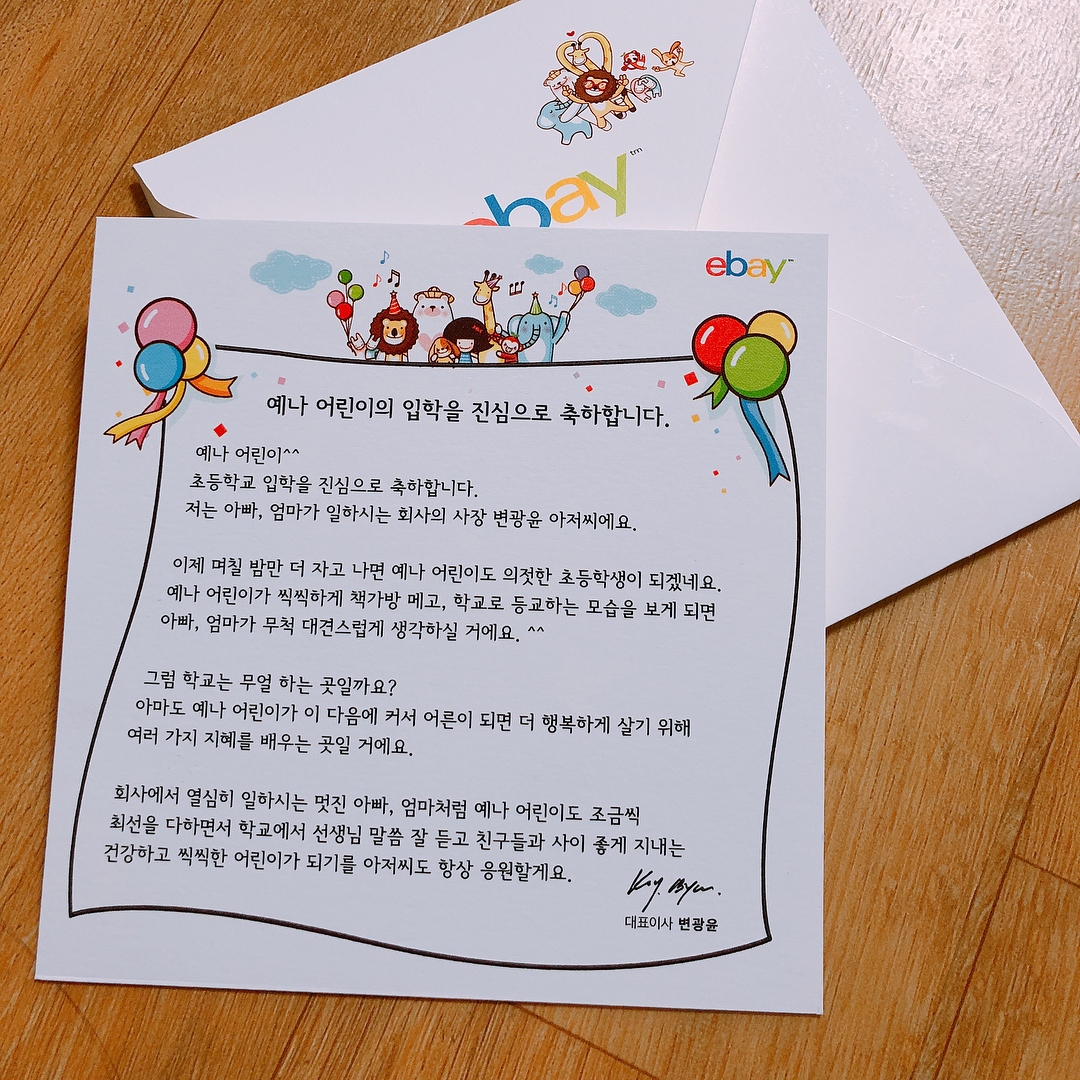 ebay™
ebay™
예나 어린이의 입학을 진심으로 축하합니다.
예나 어린이^^
초등학교 입학을 진심으로 축하합니다.
저는 아빠, 엄마가 일하시는 회사의 사장 변광윤 아저씨에요.
이제 며칠 밤만 더 자고 나면 예나 어린이도 의젓한 초등학생이 되겠네요.
예나 어린이가 씩씩하게 책가방 메고, 학교로 등교하는 모습을 보게 되면
아빠, 엄마가 무척 대견스럽게 생각하실 거에요. ^^
그럼 학교는 무얼 하는 곳일까요?
아마도 예나 어린이가 이 다음에 커서 어른이 되면 더 행복하게 살기 위해
여러 가지 지혜를 배우는 곳일 거에요.
회사에서 열심히 일하시는 멋진 아빠, 엄마처럼 예나 어린이도 조금씩
최선을 다하면서 학교에서 선생님 말씀 잘 듣고 친구들과 사이 좋게 지내는
건강하고 씩씩한 어린이가 되기를 아저씨도 항상 응원할게요.
대표이사 변광윤